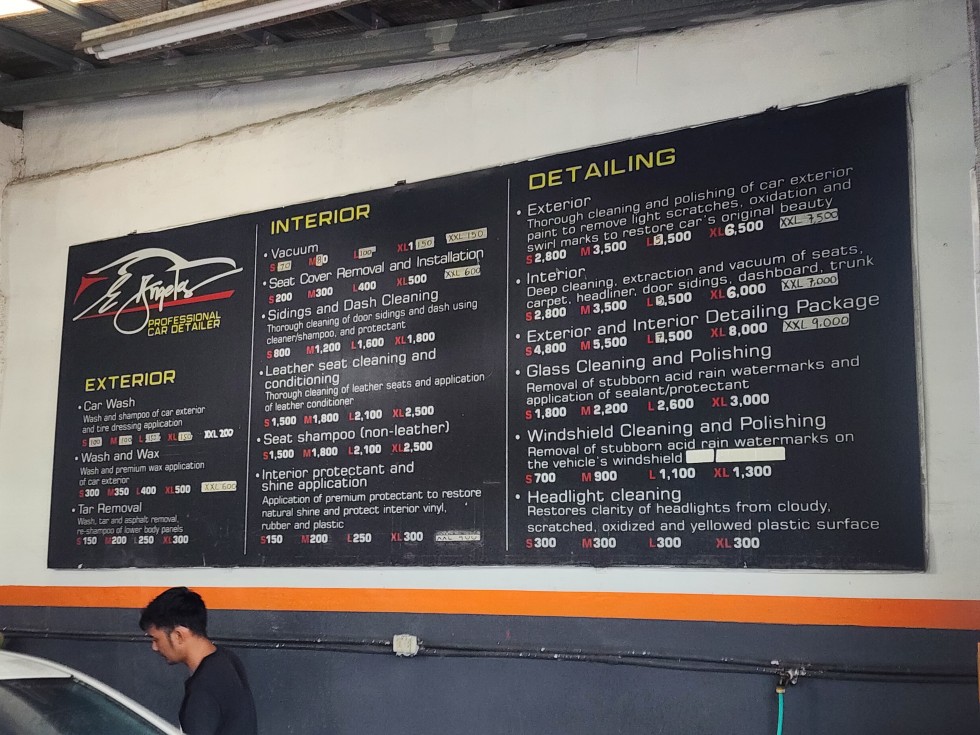 Angeles
PROFESSIONAL
CAR DETAILER
EXTERIOR
• Car Wash
Wash and shampoo of car exterior
and tire dressing application
S 100 M 100 L XL XXL 200
• Wash and Wax
Wash and premium wax application
of car exterior
S 300 M 350 L 400 XL 500 XXL 600
• Tar Removal
Wash, tar and asphalt removal,
re-shampoo of lower body panels
S 150 M 200 L 250 XL 300
INTERIOR
• Vacuum
S 70 M 80 L 100 XL 150 XXL 150
• Seat Cover Removal and Installation
S 200 M 300 L 400 XL 500 XXL 600
• Sidings and Dash Cleaning
Thorough cleaning of door sidings and dash using
cleaner/shampoo, and protectant
S 800 M 1,200 L 1,600 XL 1,800
• Leather seat cleaning and
conditioning
Thorough cleaning of leather seats and application
of leather conditioner
S 1,500 M 1,800 L 2,100 XL 2,500
• Seat shampoo (non-leather)
S 1,500 M 1,800 L 2,100 XL 2,500
• Interior protectant and
shine application
Application of premium protectant to restore
natural shine and protect interior vinyl,
rubber and plastic
S 150 M 200 L 250 XL 300
DETAILING
• Exterior
Thorough cleaning and polishing of car exterior
paint to remove light scratches, oxidation and
swirl marks to restore car's original beauty
S 2,800 M 3,500 L 5,500 XL 6,500 XXL 7,500
• Interior
Deep cleaning, extraction and vacuum of seats,
carpet, headliner, door sidings, dashboard, trunk
S 2,800 M 3,500 L XL 6,000 XXL 7,000
• Exterior and Interior Detailing Package
S 4,800 M 5,500 L 7,500 XL 8,000 XXL 9,000
• Glass Cleaning and Polishing
Removal of stubborn acid rain watermarks and
application of sealant/protectant
S 1,800 M 2,200 L 2,600 XL 3,000
• Windshield Cleaning and Polishing
Removal of stubborn acid rain watermarks on
the vehicle's windshield
S 700 M 900 L 1,100 XL 1,300
• Headlight cleaning
Restores clarity of headlights from cloudy,
scratched, oxidized and yellowed plastic surface
S 300 M 300 L 300 XL 300